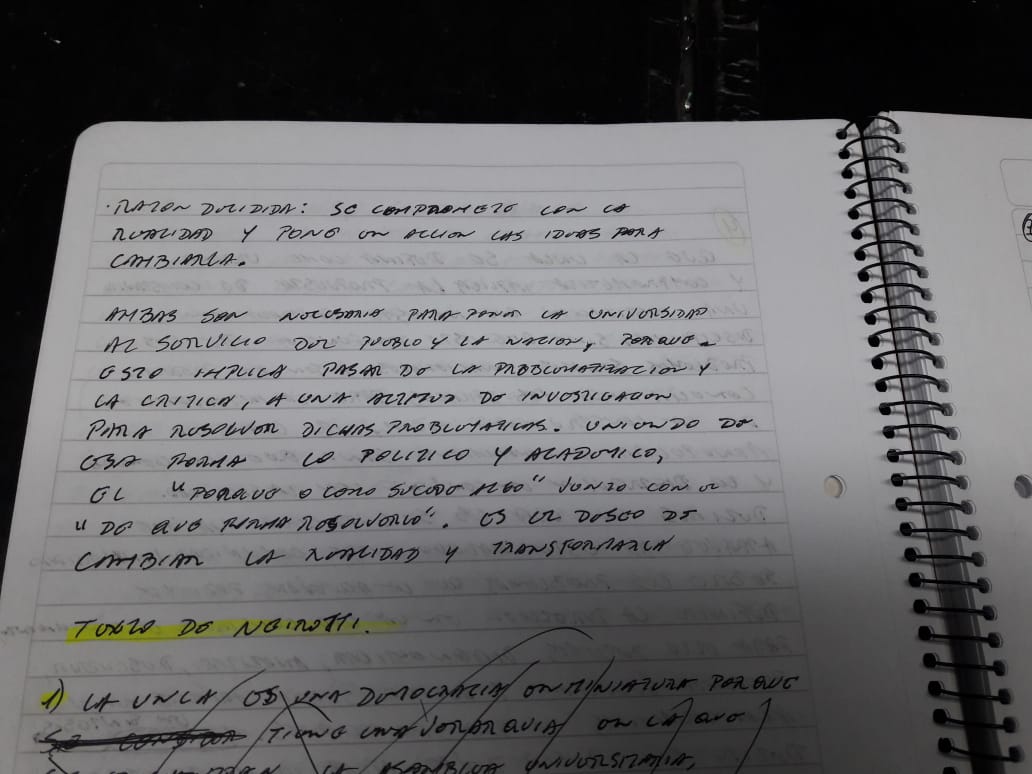 · RAZON DECIDIDA: SE COMPROMETE CON LA
REALIDAD Y PONE EN ACCION LAS IDEAS PARA
CAMBIARLA.
AMBAS SON NECESARIO PARA PONER LA UNIVERSIDAD
AL SERVICIO DEL PUEBLO Y LA NACION, PORQUE
ESTO IMPLICA PASAR DE LA PROBLEMATIZACION Y
LA CRITICA, A UNA ACTITUD DE INVESTIGACION
PARA RESOLVER DICHAS PROBLEMATICAS. UNIENDO DE
ESA FORMA LO POLITICO Y ACADEMICO,
EL "PORQUE O COMO SUCEDE ALGO" JUNTO CON EL
"DE QUE FORMA RESOLVERLO". ES EL DESEO DE
CAMBIAR LA REALIDAD Y TRANSFORMARLA
TEXTO DE NEIROTTI.
1) LA UNLA ES UNA DEMOCRACIA EN MINIATURA PORQUE
TIENE UNA JERARQUIA EN LA QUE
LA ASAMBLEA UNIVERSITARIA,